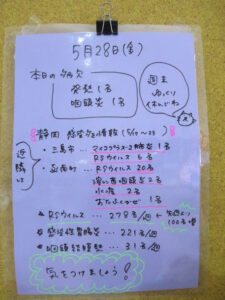 5月28日(金)
本日の病欠
発熱 1名
咽頭炎 1名
週末
ゆっくり
休んでね
静岡 感染症情報 (5/17～23)
近隣は
・三島市 … マイコプラズマ肺炎 1名
RSウイルス 6名
・函南町 … RSウイルス 20名
溶レン菌咽頭炎 2名
水痘 2名
おたふくかぜ 1名
RSウイルス … 278名/週 ← 先週より
100名増
感染性胃腸炎 … 221名/週
咽頭結膜熱 … 31名/週
気をつけましょう!